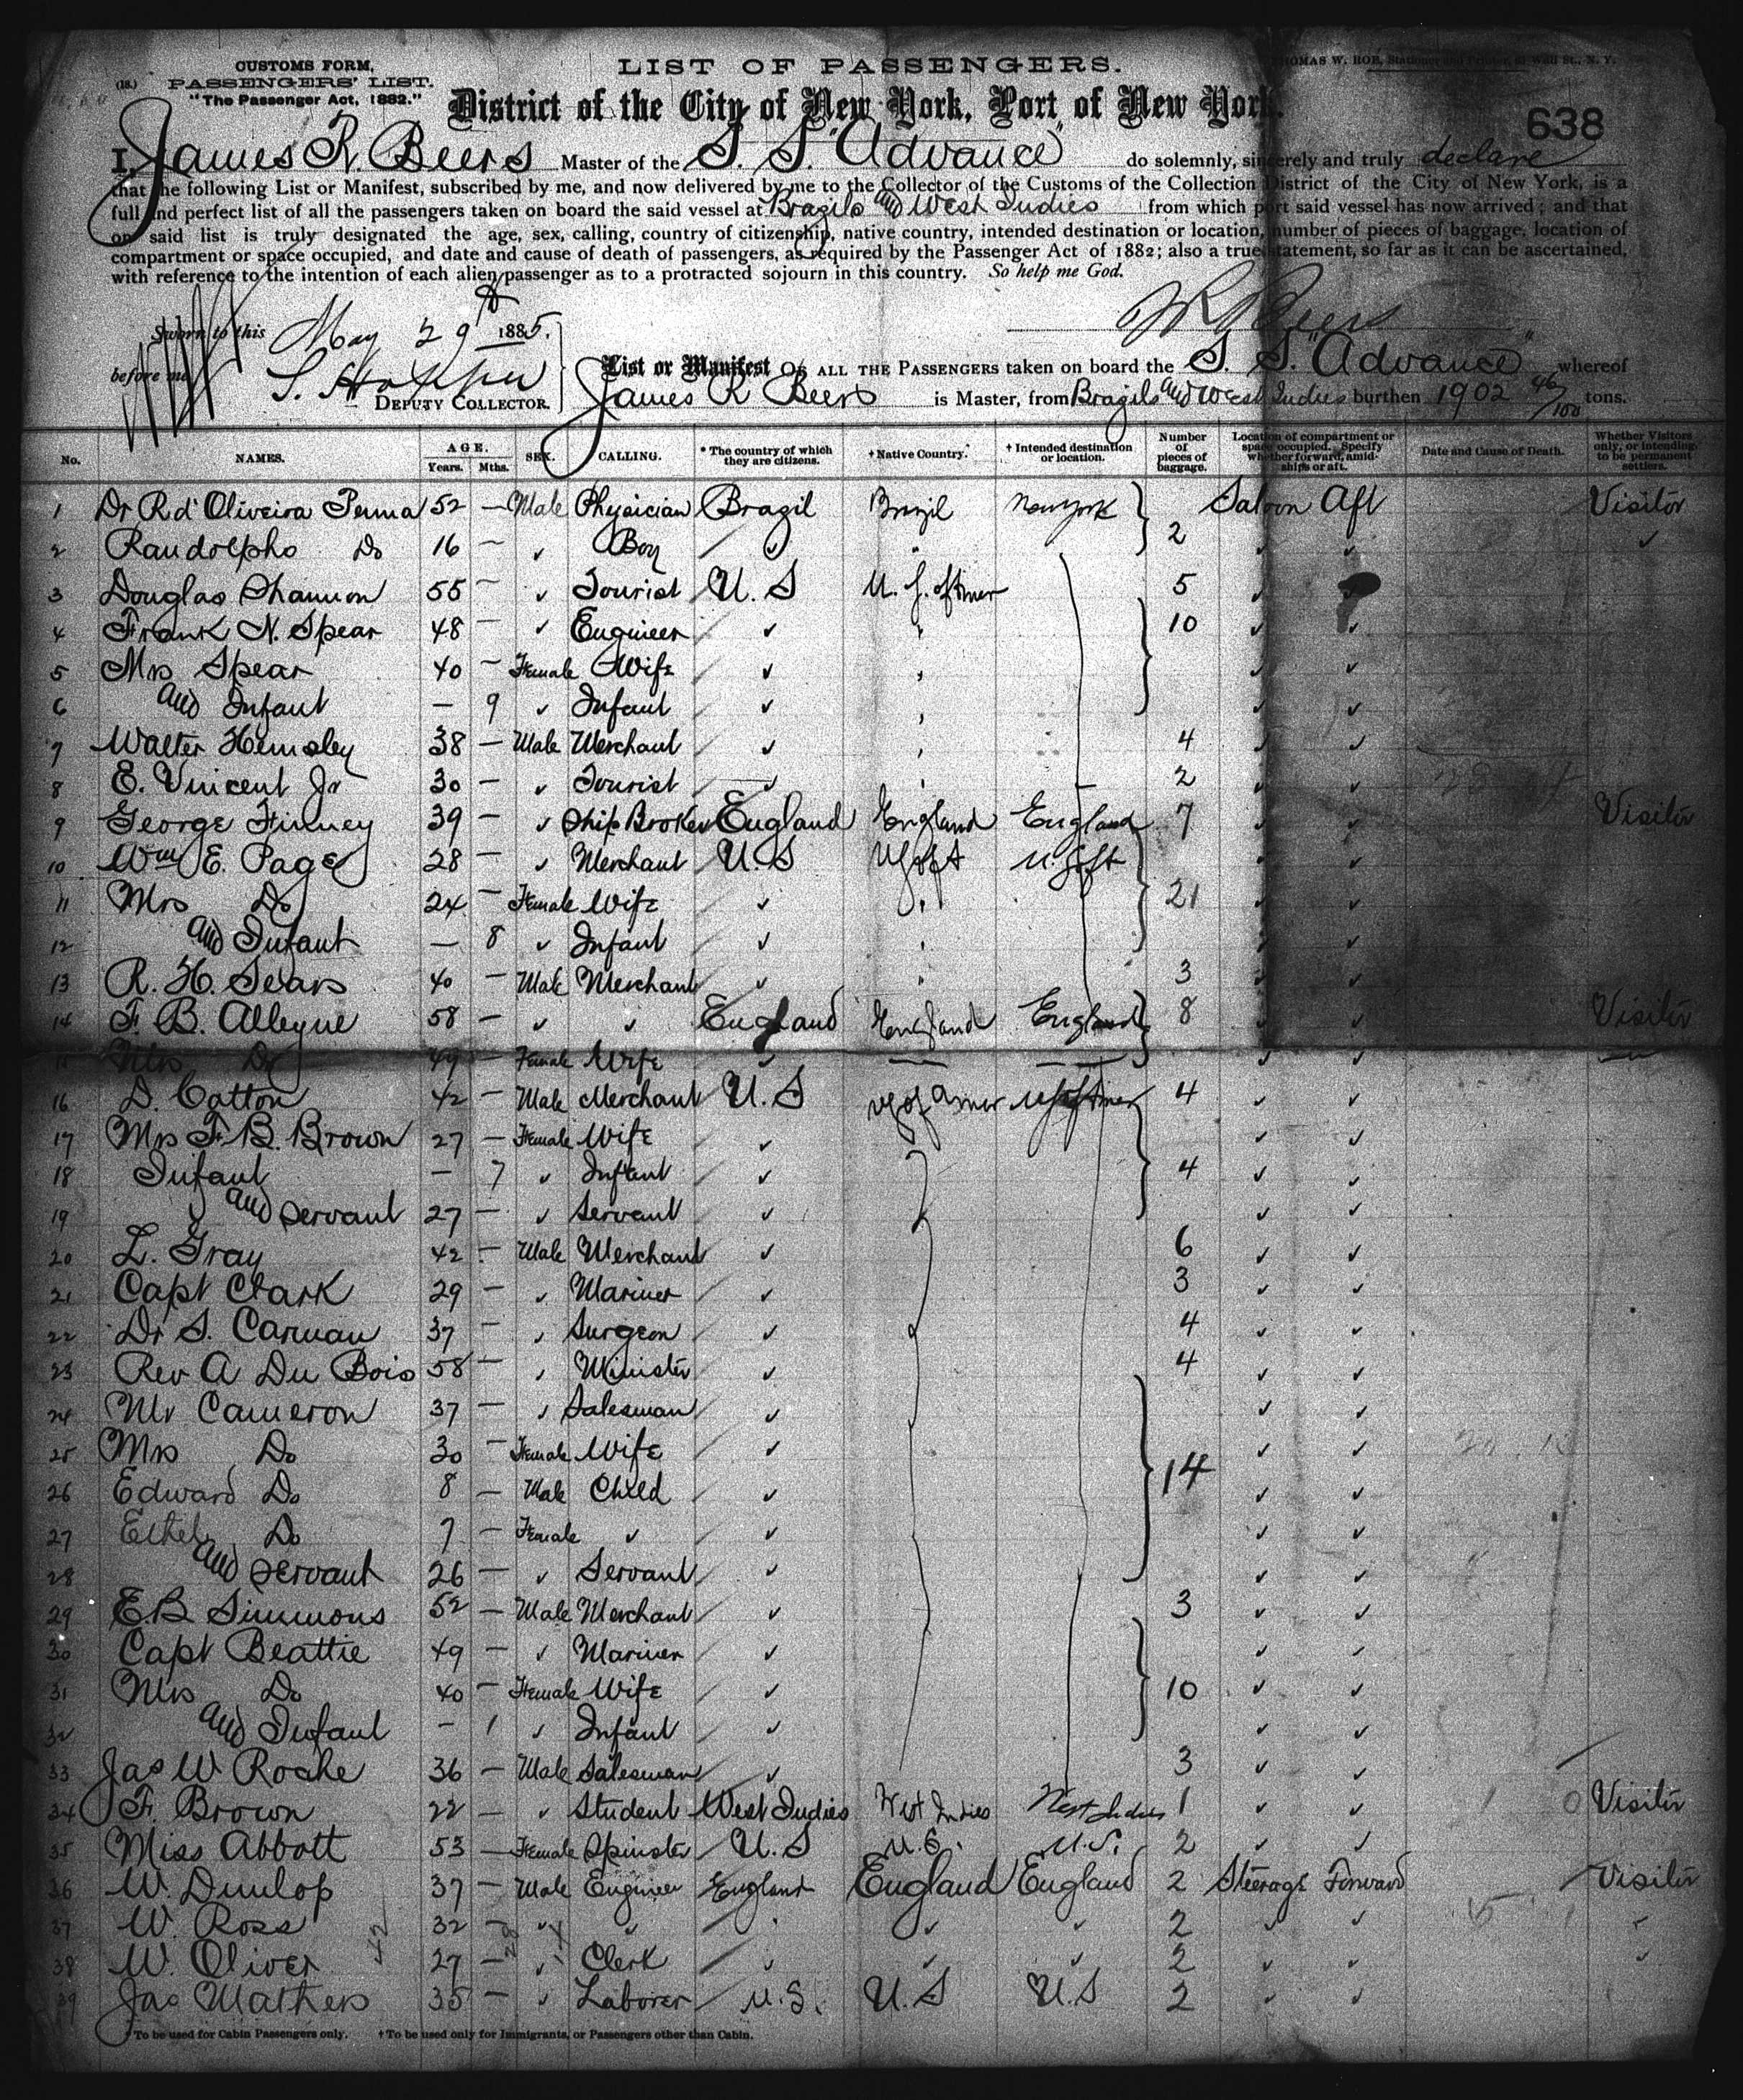 CUSTOMS FORM,
(18.) PASSENGERS' LIST.
"The Passenger Act, 1882."
LIST OF PASSENGERS.
District of the City of New York, Port of New York.
638
I, James R. Beers Master of the S. S. "Advance" do solemnly, sincerely and truly declare
that the following List or Manifest, subscribed by me, and now delivered by me to the Collector of the Customs of the Collection District of the City of New York, is a
full and perfect list of all the passengers taken on board the said vessel at Brazils and West Indies from which port said vessel has now arrived; and that
on said list is truly designated the age, sex, calling, country of citizenship, native country, intended destination or location, number of pieces of baggage, location of
compartment or space occupied, and date and cause of death of passengers, as required by the Passenger Act of 1882; also a true statement, so far as it can be ascertained,
with reference to the intention of each alien passenger as to a protracted sojourn in this country. So help me God.
Sworn to this May 29th 1885.
before me
DEPUTY COLLECTOR.
List or Manifest OF ALL THE PASSENGERS taken on board the S. S. "Advance" whereof
James R Beers is Master, from Brazils and West Indies burthen 1902 46/100 tons.
No. NAMES. AGE. Years. Mths. SEX. CALLING. * The country of which they are citizens. † Native Country. † Intended destination or location. Number of pieces of baggage. Location of compartment or space occupied. Specify whether forward, amidships or aft. Date and Cause of Death. Whether Visitors only, or intending to be permanent settlers.
1 Dr R d'Oliveira Penna 52 — Male Physician Brazil Brazil New York } Saloon Aft Visitor
2 Randolpho Do 16 — ✓ Boy ✓ 2 ✓ ✓ ✓
3 Douglas Shannon 55 — ✓ Tourist U. S U. S. of Amer 5 ✓ ✓
4 Frank N. Spear 48 — ✓ Engineer ✓ 10 ✓ ✓
5 Mrs Spear 40 — Female Wife ✓ ✓ ✓
6 and Infant — 9 ✓ Infant ✓ ✓ ✓
7 Walter Hemsley 38 — Male Merchant ✓ 4 ✓ ✓
8 E. Vincent Jr 30 — ✓ Tourist ✓ 2 ✓ ✓
9 George Finney 39 — ✓ Ship Broker England England England 7 ✓ ✓ Visitor
10 Wm E. Page 28 — ✓ Merchant U. S ✓ ✓
11 Mrs Do 24 — Female Wife ✓ 21 ✓ ✓
12 and Infant — 8 ✓ Infant ✓ ✓ ✓
13 R. H. Sears 40 — Male Merchant ✓ 3 ✓ ✓
14 F. B. Alleyne 58 — ✓ ✓ England England England 8 ✓ ✓ Visitor
15 Mrs Do 49 — Female Wife ✓ — — ✓ ✓ —
16 D. Cotton 42 — Male Merchant U. S U S of Amer U S of Amer 4 ✓ ✓
17 Mrs F. B. Brown 27 — Female Wife ✓ ✓ ✓
18 Infant — 7 ✓ Infant ✓ 4 ✓ ✓
19 and Servant 27 — ✓ Servant ✓ ✓ ✓
20 L. Gray 42 — Male Merchant ✓ 6 ✓ ✓
21 Capt Clark 29 — ✓ Mariner ✓ 3 ✓ ✓
22 Dr S. Carman 37 — ✓ Surgeon ✓ 4 ✓ ✓
23 Rev A Du Bois 58 — ✓ Minister ✓ 4 ✓ ✓
24 Mr Cameron 37 — ✓ Salesman ✓ ✓ ✓
25 Mrs Do 30 — Female Wife ✓ ✓ ✓
26 Edward Do 8 — Male Child ✓ 14 ✓ ✓
27 Ethel Do 7 — Female ✓ ✓ ✓ ✓
28 and Servant 26 — ✓ Servant ✓ ✓ ✓
29 E B Simmons 52 — Male Merchant ✓ 3 ✓ ✓
30 Capt Beattie 49 — ✓ Mariner ✓ ✓ ✓
31 Mrs Do 40 — Female Wife ✓ 10 ✓ ✓
32 and Infant — 1 ✓ Infant ✓ ✓ ✓
33 Jas W Roche 36 — Male Salesman ✓ 3 ✓ ✓
34 F. Brown 22 — ✓ Student West Indies West Indies West Indies 1 ✓ ✓ Visitor
35 Miss Abbott 53 — Female Spinster U. S U. S. U. S. 2 ✓ ✓
36 W. Dunlop 37 — Male Engineer England England England 2 Steerage Forward Visitor
37 W. Ross 32 — ✓ ✓ ✓ ✓ 2 ✓ ✓ ✓
38 W. Oliver 27 — ✓ Clerk ✓ ✓ ✓ 2 ✓ ✓ ✓
39 Jas Mathers 35 — ✓ Laborer U. S. U. S U. S 2 ✓ ✓
* To be used for Cabin Passengers only. † To be used only for Immigrants, or Passengers other than Cabin.